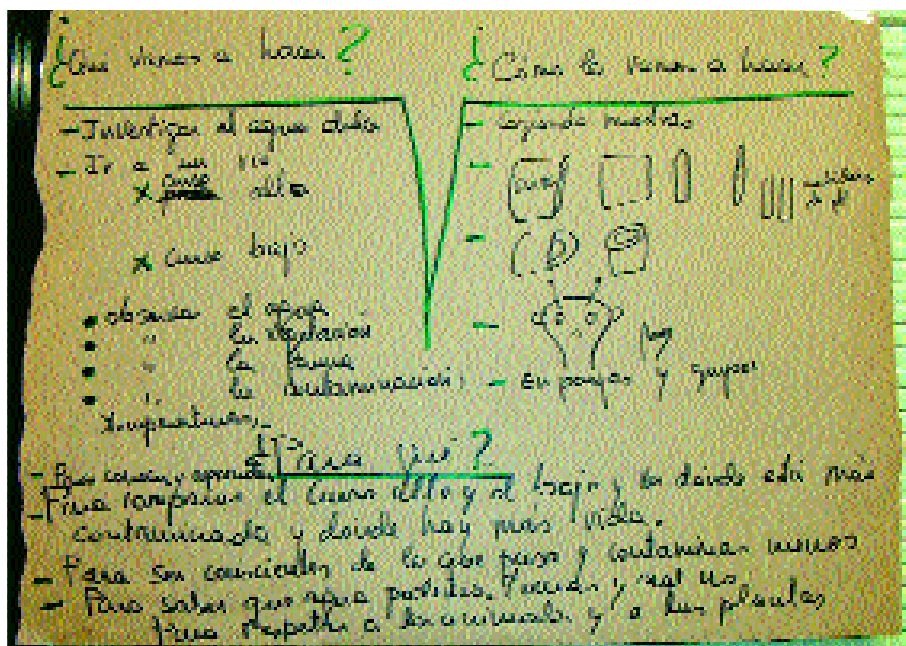 ¿Qué vamos a hacer?
- Investigar el agua dulce
- Ir a un río
x curso alto
x curso bajo
• observar el agua
• " la vegetación
• " la fauna
• " la contaminación
temperaturas.
¿Cómo lo vamos a hacer?
- cogiendo muestras
-
-
-
- en parejas y grupos
¿Para qué?
- Para conocer y aprender
- Para comparar el curso alto y el bajo y en dónde está más
contaminado y dónde hay más vida.
- Para ser conscientes de lo que pasa y contaminar menos
- Para saber que agua
Para respetar a los animales y a las plantas